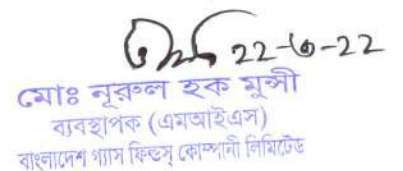 22-৬-22
মোঃ নূরুল হক মুন্সী
ব্যবস্থাপক (এমআইএস)
বাংলাদেশ গ্যাস ফিল্ডস্ কোম্পানী লিমিটেড